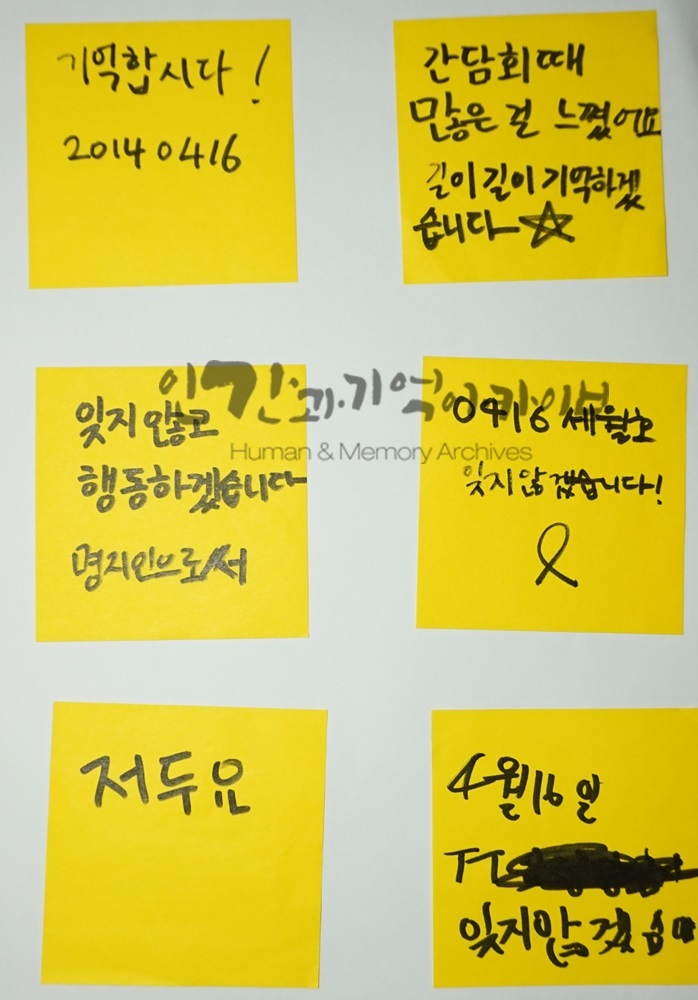 기억합시다!
20140416
간담회때
많은 걸 느꼈어요
길이길이 기억하겠
습니다
잊지 않고
행동하겠습니다
명지인으로서
0416 세월호
잊지 않겠습니다!
이간과.기억아카이브
Human & Memory Archives
저두요
4월16일
잊지않겠